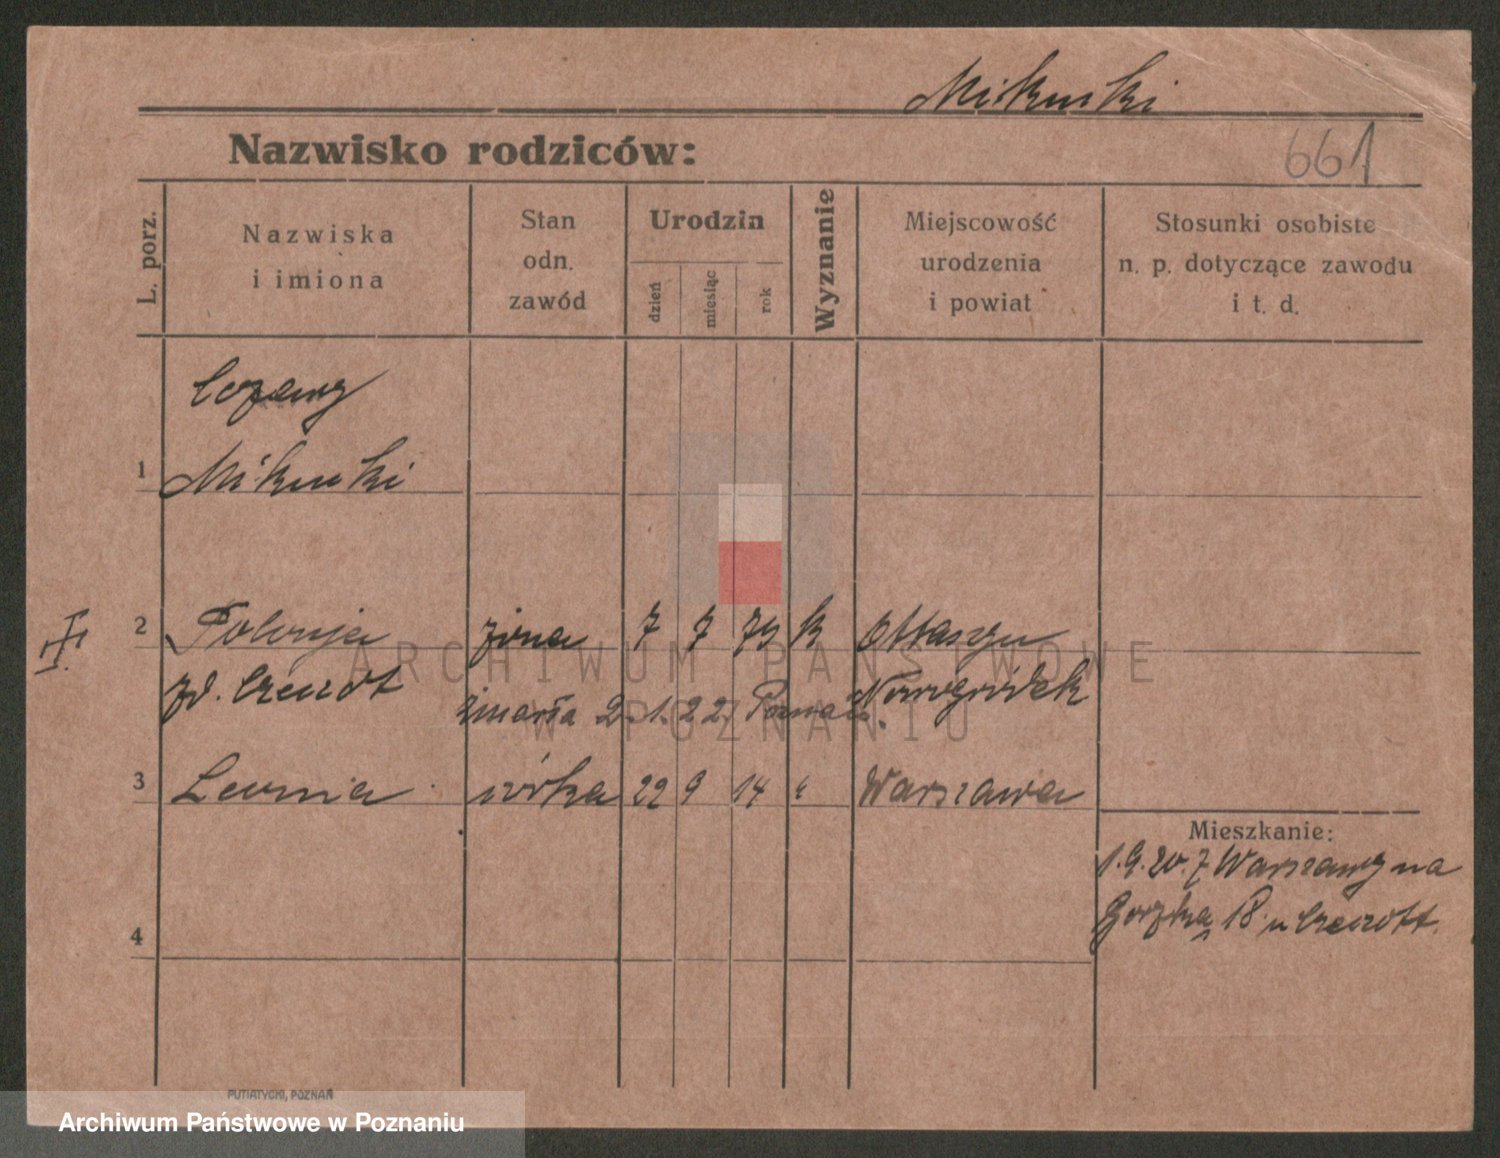 Mikucki
Nazwisko rodziców:
661
L. porz.
Nazwiska
i imiona
Stan
odn.
zawód
Urodzin
dzień
miesiąc
rok
Wyznanie
Miejscowość
urodzenia
i powiat
Stosunki osobiste
n. p. dotyczące zawodu
i t. d.
Cezary
1 Mikucki
2 żona 7 7 79 k
zd. Czeczot Nowogródek
zmarła 2.1.22. Poznań.
3 Leonia córka 22 9 14 " Warszawa
Mieszkanie:
1.9.20. z Warszawy na
18 u Czeczott.
4
ARCHIWUM PAŃSTWOWE
W POZNANIU
PUTIATYCKI, POZNAŃ
Archiwum Państwowe w Poznaniu